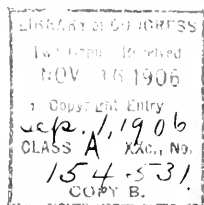 LIBRARY of CONGRESS
Two Copies Received
NOV 16 1906
Copyright Entry
Sep. 1, 1906
CLASS A XXc., No.
154531
COPY B.